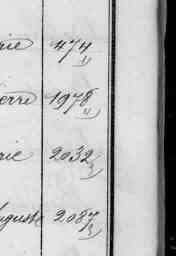 rie 474
1)
erre 1978
4)
rie 2032
3)
uguste 2087
3)